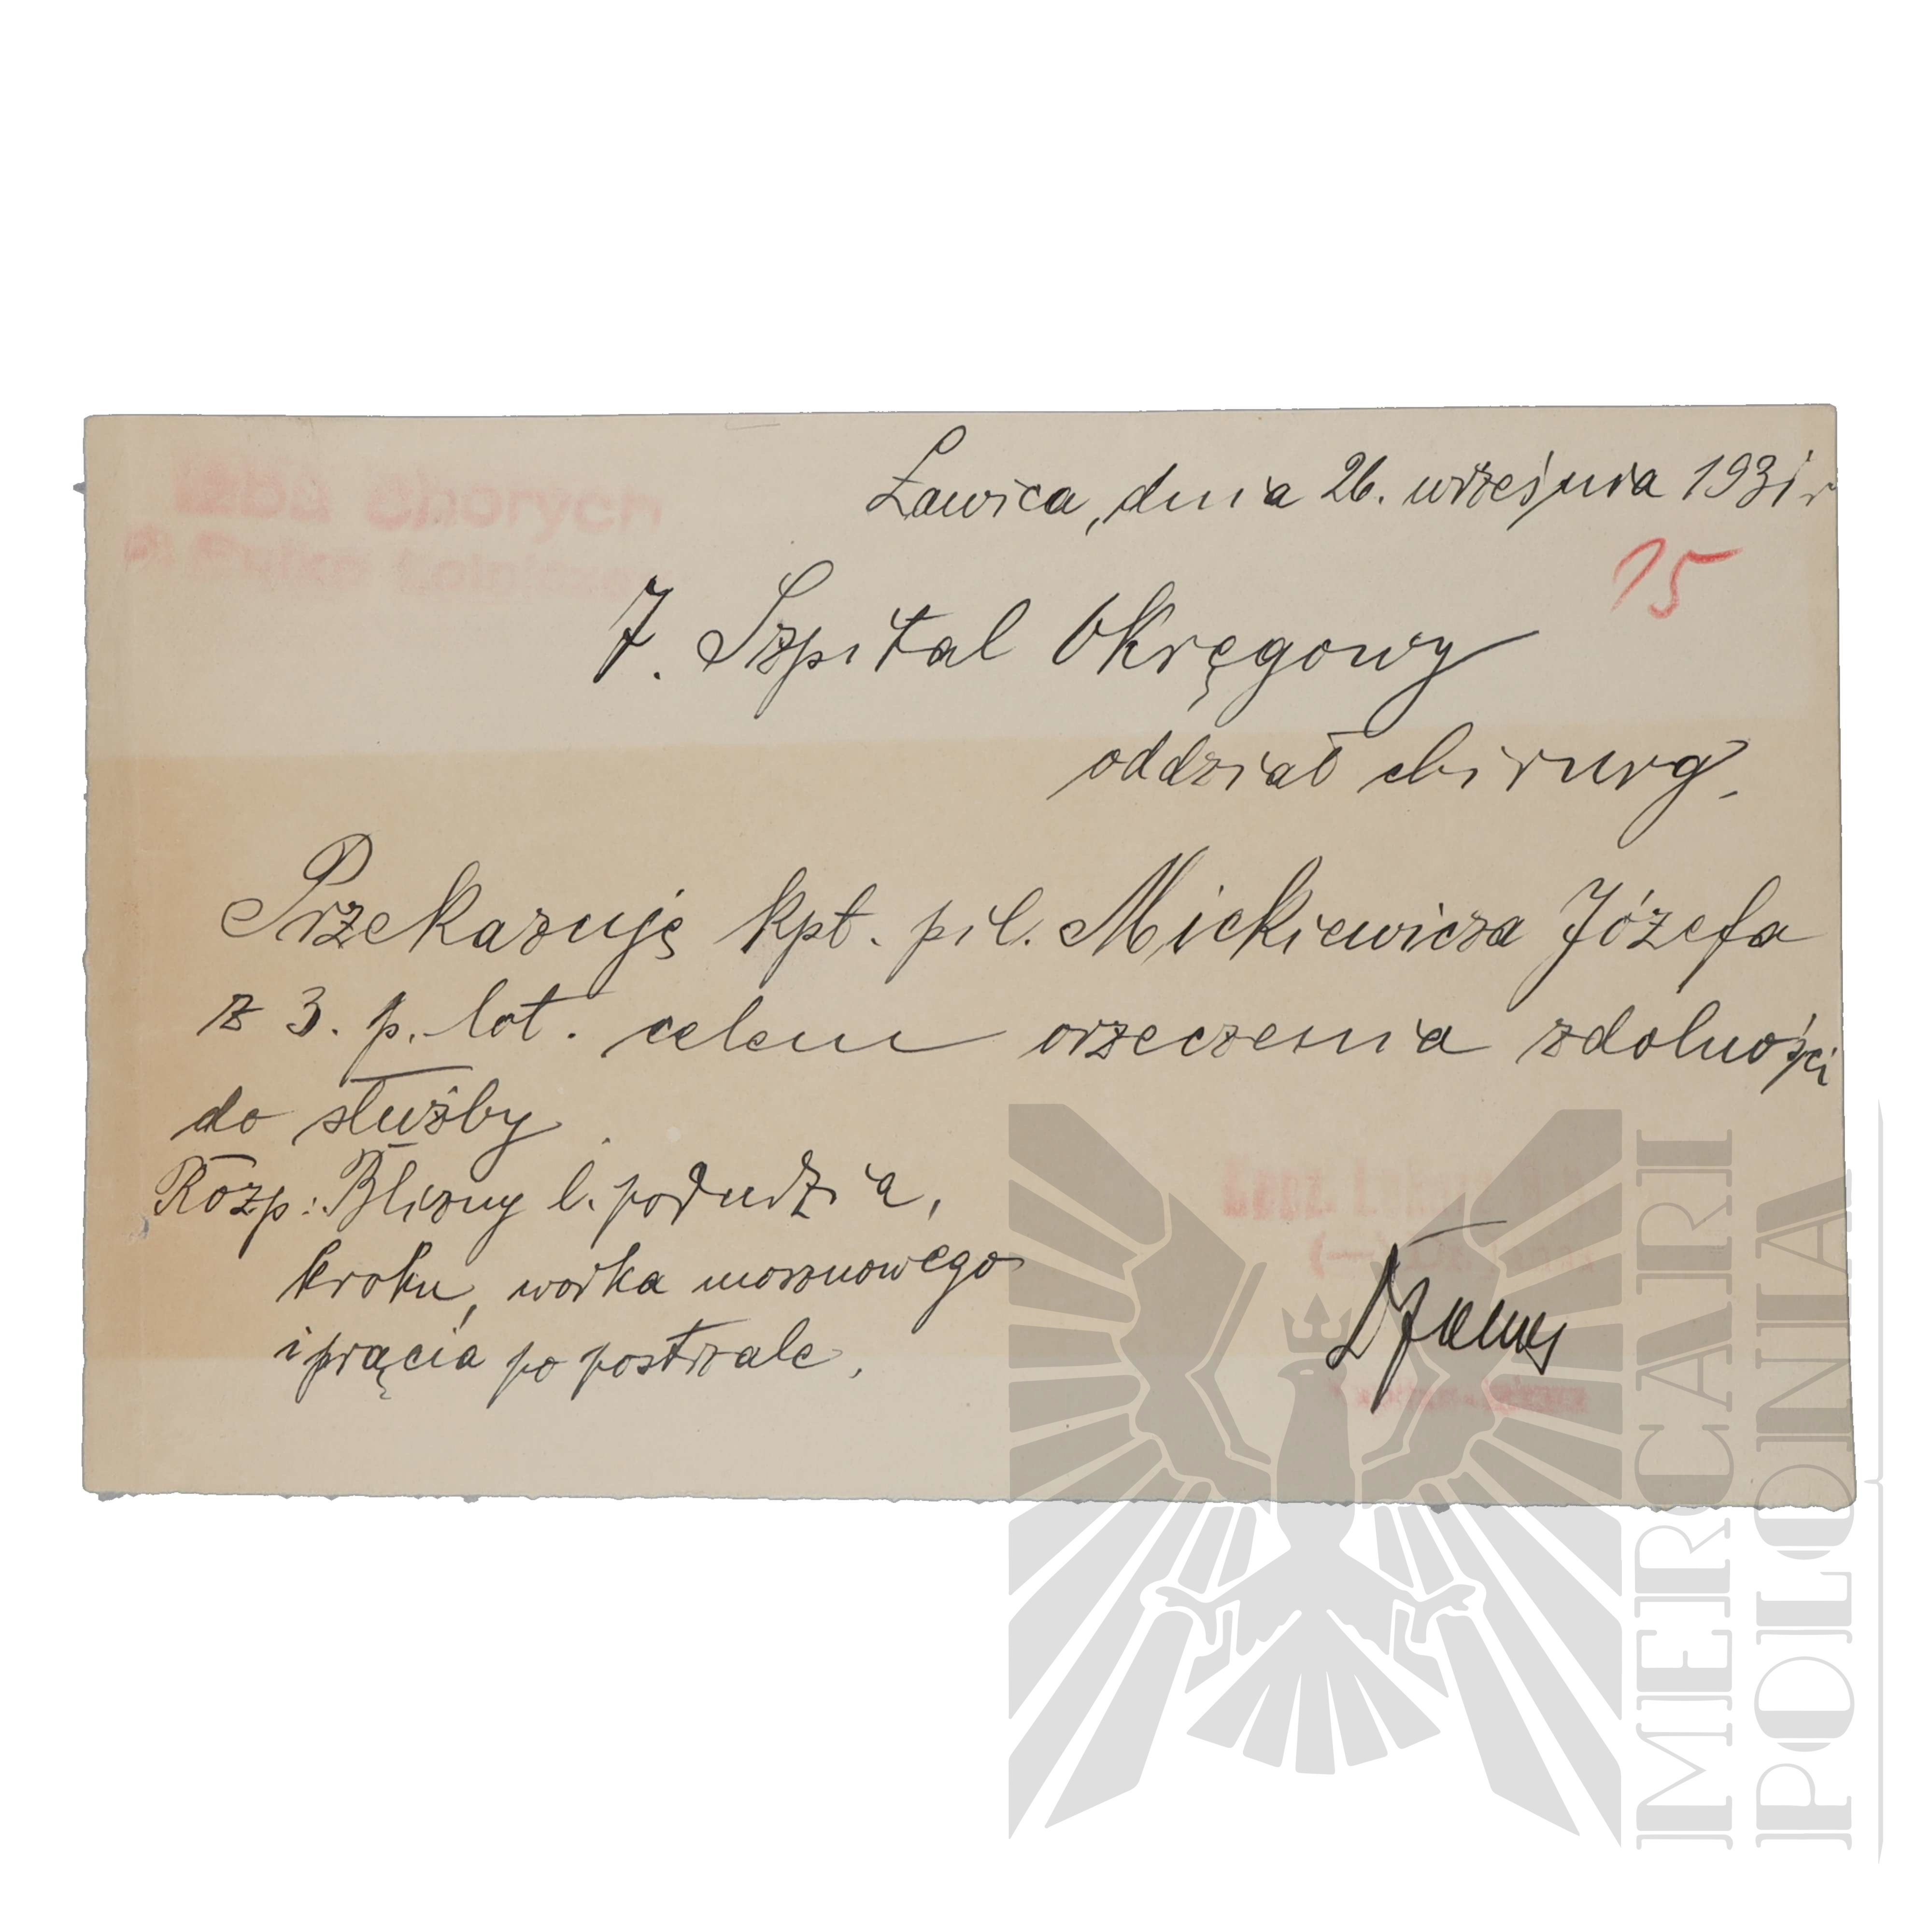 Izba Chorych
3 Pułku Lotniczego
Ławica, dnia 26. września 1931 r
15
7. Szpital Okręgowy
oddział chirurg.
Przekazuję kpt. pil. Mickiewicza Józefa
z 3. p. lot. celem orzeczenia zdolności
do służby
Rozp: Blizny l. podudzia,
kroku, worka mosznowego
i prącia po postrzale.
MERCARI
POLONIA